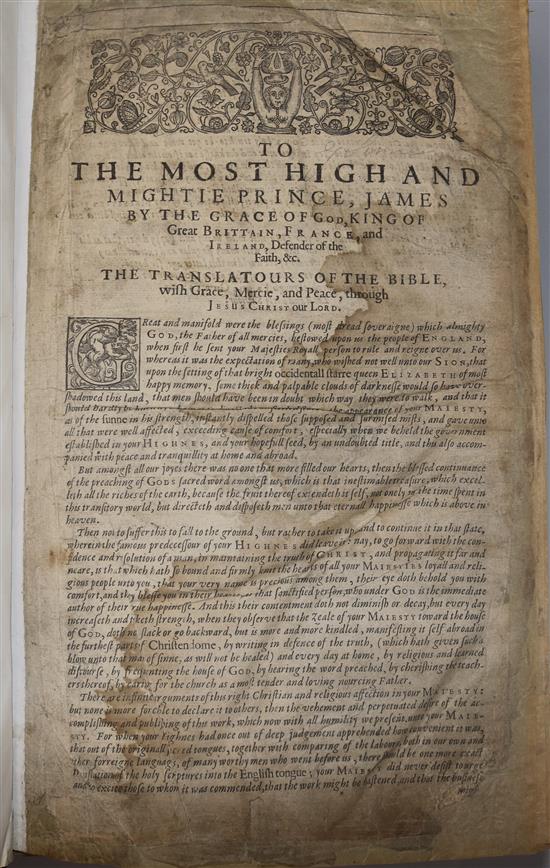 TO
THE MOST HIGH AND
MIGHTIE PRINCE, JAMES
BY THE GRACE OF GOD, KING OF
Great BRITTAIN, FRANCE, and
IRELAND, Defender of the
Faith, &c.
THE TRANSLATOURS OF THE BIBLE,
wish Grace, Mercie, and Peace, through
JESUS CHRIST our LORD.
GReat and manifold were the blessings (most dread soveraigne) which almighty
GOD, the Father of all mercies, bestowed upon us the people of ENGLAND,
when first he sent your Majesties Royall person to rule and reigne over us. For
whereas it was the expectation of many, who wished not well unto our SION, that
upon the setting of that bright occidentall starre queen ELIZABETH of most
happy memory, some thick and palpable clouds of darknesse would so have over-
shadowed this land, that men should have been in doubt which way they were to walk, and that it
should the appearance of your MAJESTY,
as of the sunne in his strength, instantly dispelled those supposed and surmised mists, and gave unto
all that were well affected, exceeding cause of comfort, especially when we beheld the government
established in your HIGHNES, and your hopefull seed, by an undoubted title, and this also accom-
panied with peace and tranquillity at home and abroad.
But amongst all our joyes there was no one that more filled our hearts, then the blessed continuance
of the preaching of GODS sacred word amongst us, which is that inestimable treasure, which excel-
leth all the riches of the earth, because the fruit thereof extendeth it self, not onely to the time spent in
this transitory world, but directeth and disposeth men unto that eternall happinesse which is above in
heaven.
Then not to suffer this to fall to the ground, but rather to take it up, and to continue it in that state,
wherein the famous predecessour of your HIGHNES did leave it: nay, to go forward with the con-
fidence and resolution of a man, in maintaining the truth of CHRIST, and propagating it far and
neare, is that which hath so bound and firmly knit the hearts of all your MAJESTIES loyall and reli-
gious people unto you, that your very name is precious among them, their eye doth behold you with
comfort, and they blesse you in their hearts, as that sanctified person, who under GOD is the immediate
author of their true happinesse. And this their contentment doth not diminish or decay, but every day
increaseth and taketh strength, when they observe that the zeale of your MAJESTY toward the house
of GOD, doth no slack or go backward, but is more and more kindled, manifesting it self abroad in
the furthest parts of Christendome, by writing in defence of the truth, (which hath given such a
blow unto that man of sinne, as will not be healed) and every day at home, by religious and learned
discourse, by frequenting the house of GOD, by hearing the word preached, by cherishing the teach-
ers thereof, by caring for the church as a most tender and loving nourcing Father.
There are infinite arguments of this right Christian and religious affection in your MAJESTY:
but none is more forcible to declare it to others, then the vehement and perpetuated desire of the ac-
complishing and publishing of this work, which now with all humility we present unto your MAJE-
STY. For when your Highnes had once out of deep judgement apprehended how convenient it was,
that out of the originall sacred tongues, together with comparing of the labours both in our own and
other forreigne languags, of many worthy men who went before us, there should be one more exact
translation of the holy scriptures into the English tongue; your MAJESTY did never desist to urge
and to excite those to whom it was commended, that the work might be hastened, and that the businesse
might